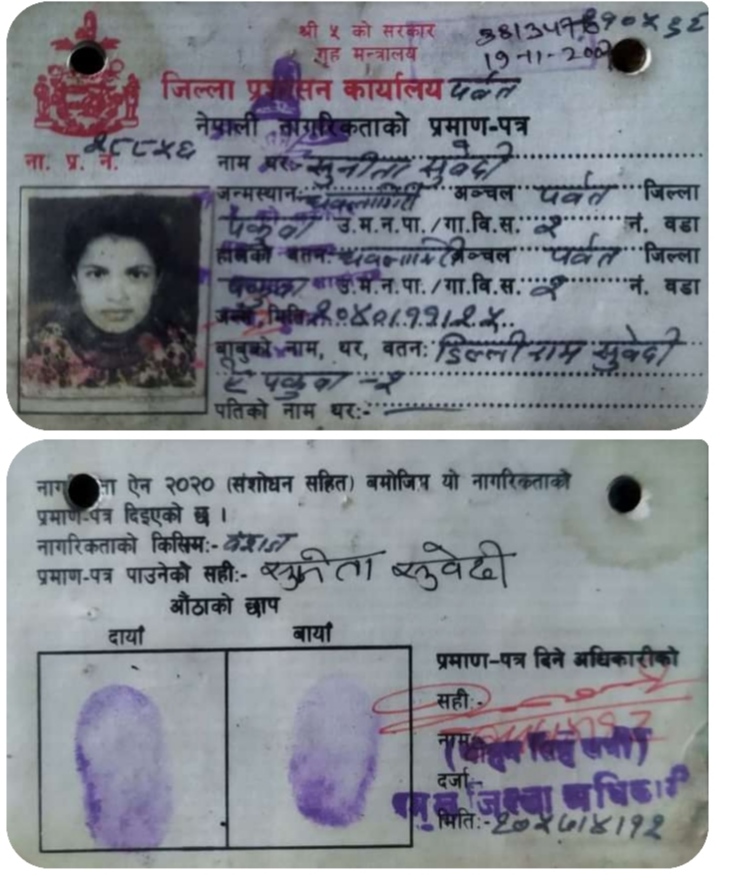 श्री ५ को सरकार
गृह मन्त्रालय
19-11-200
जिल्ला प्रशासन कार्यालय पर्वत
नेपाली नागरिकताको प्रमाण-पत्र
ना. प्र. नं.
नाम थरः- सुनीता सुवेदी
जन्मस्थानः- धवलागिरी अञ्चल पर्वत जिल्ला
पकुवा उ.म.न.पा./गा.वि.स. २ नं. वडा
हालको वतनः धवलागिरी अञ्चल पर्वत जिल्ला
पकुवा उ.म.न.पा./गा.वि.स. २ नं. वडा
जन्म मिति
बाबुको नाम, थर, वतनः डिल्लीराम सुवेदी
ऐ पकुवा -२
पतिको नाम थरः-
ना ऐन २०२० (संशोधन सहित) बमोजिम यो नागरिकताको
प्रमाण-पत्र दिइएको छ ।
नागरिकताको किसिमः- वंशज
प्रमाण-पत्र पाउनेको सहीः- सुनिता सुवेदी
औंठाको छाप
दायाँ बायाँ
प्रमाण-पत्र दिने अधिकारीको
सहीः-
नामः
दर्जाः-
प्रमुख जिल्ला अधिकारी
मितिः-